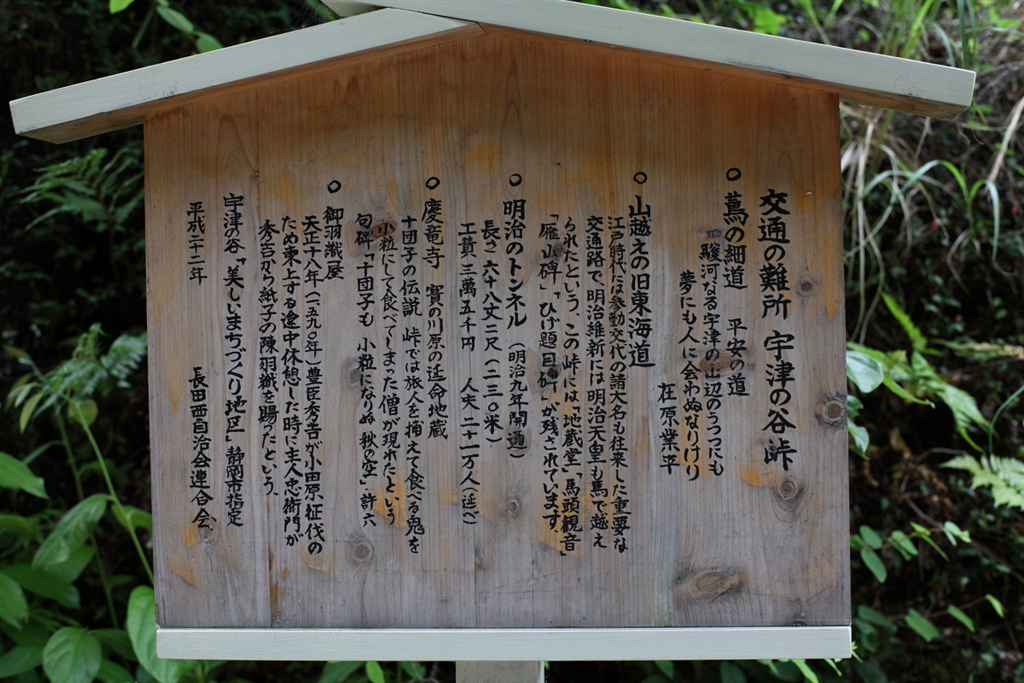 交通の難所 宇津の谷峠
○ 蔦の細道 平安の道
駿河なる宇津の山辺のうつつにも
夢にも人に会わぬなりけり
在原業平
○ 山越えの旧東海道
江戸時代は参勤交代の諸大名も往来した重要な
交通路で、明治維新には明治天皇も馬で越え
られたという、この峠には「地蔵堂」「馬頭観音」
「雁山碑」「ひげ題目碑」が残されています
○ 明治のトンネル (明治九年開通)
長さ六十八丈二尺(二三〇米)
工費三萬五千円 人夫二十一万人(延べ)
○ 慶竜寺 賽の川原の延命地蔵
十団子の伝説 峠では旅人を捕えて食べる鬼を
小粒にして食べてしまった僧が現れたという
句碑「十団子も 小粒になりぬ 秋の空」許六
○ 御羽織屋
天正十八年(一五九〇年)豊臣秀吉が小田原征伐の
ため東上する途中休憩した時に主人忠衛門が
秀吉から紙子の陳羽織を賜ったという。
宇津の谷「美しいまちづくり地区」静岡市指定
平成二十二年 長田西自治会連合会